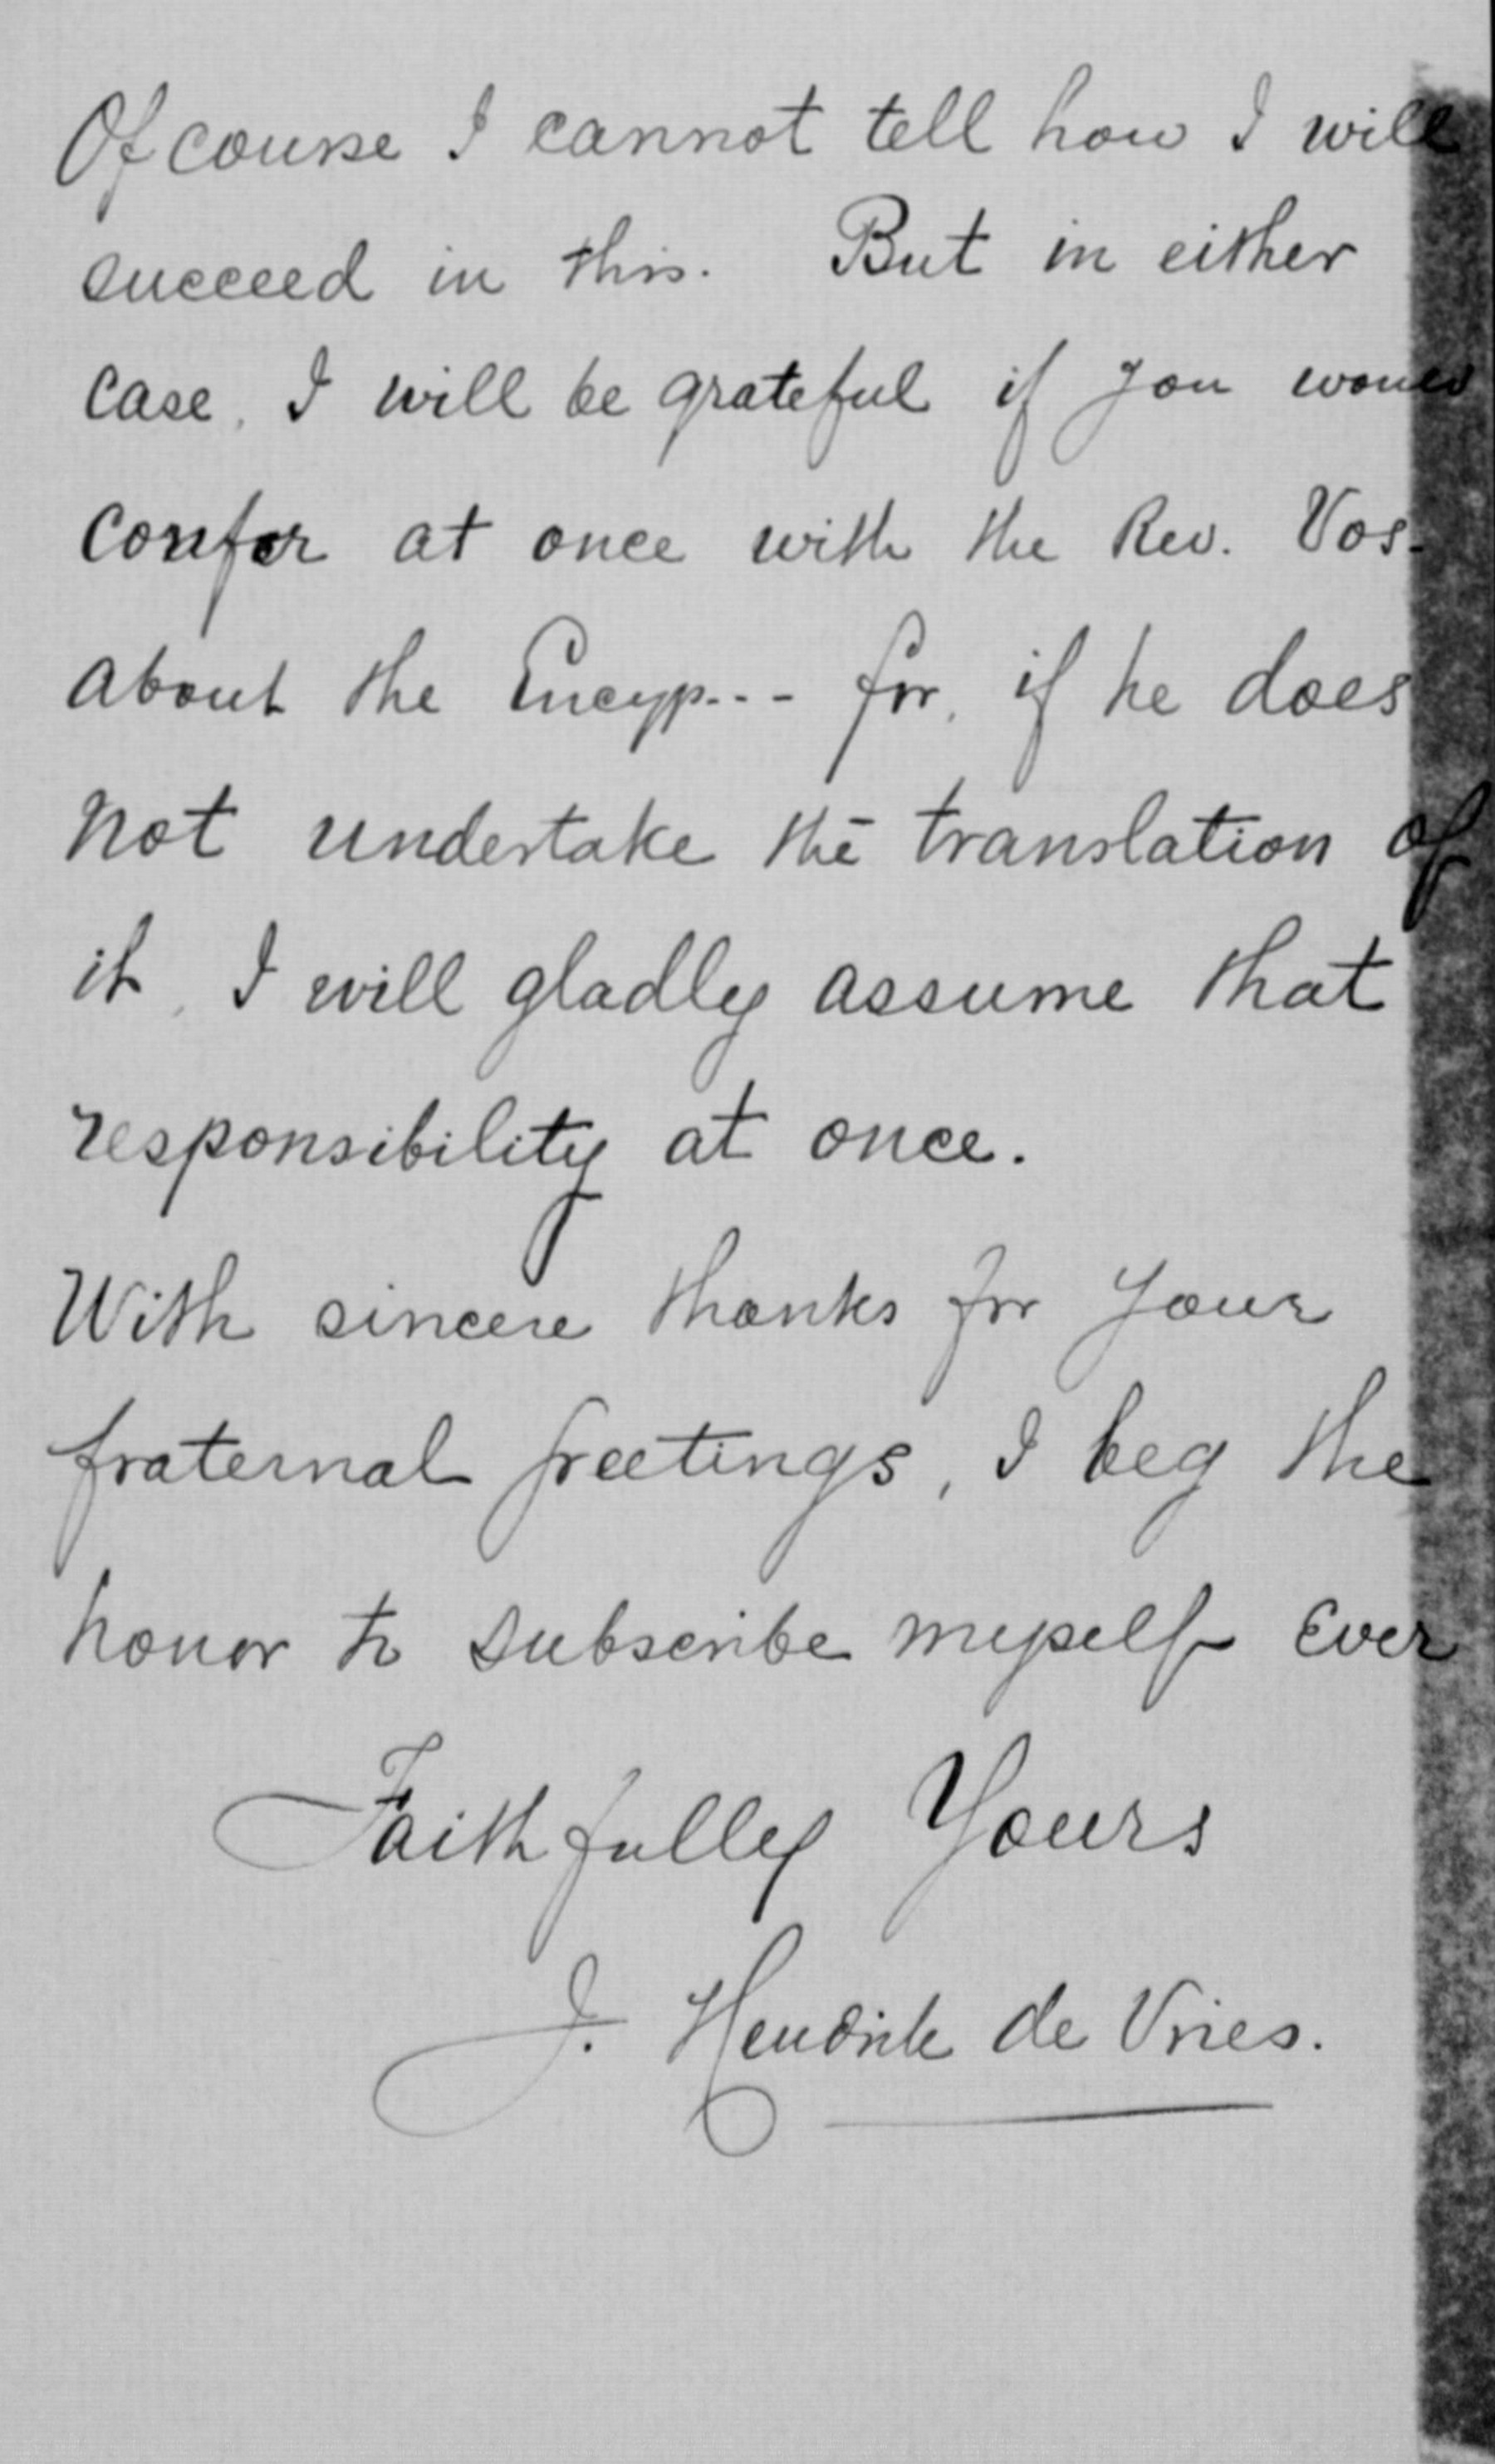 Of course I cannot tell how I will
succeed in this. But in either
case, I will be grateful if you would
confer at once with the Rev. Vos.
about the Encyp--- for, if he does
not undertake the translation of
it, I will gladly assume that
responsibility at once.
With sincere thanks for your
fraternal greetings, I beg the
honor to subscribe myself ever
Faithfully Yours
J. Hendrik de Vries.